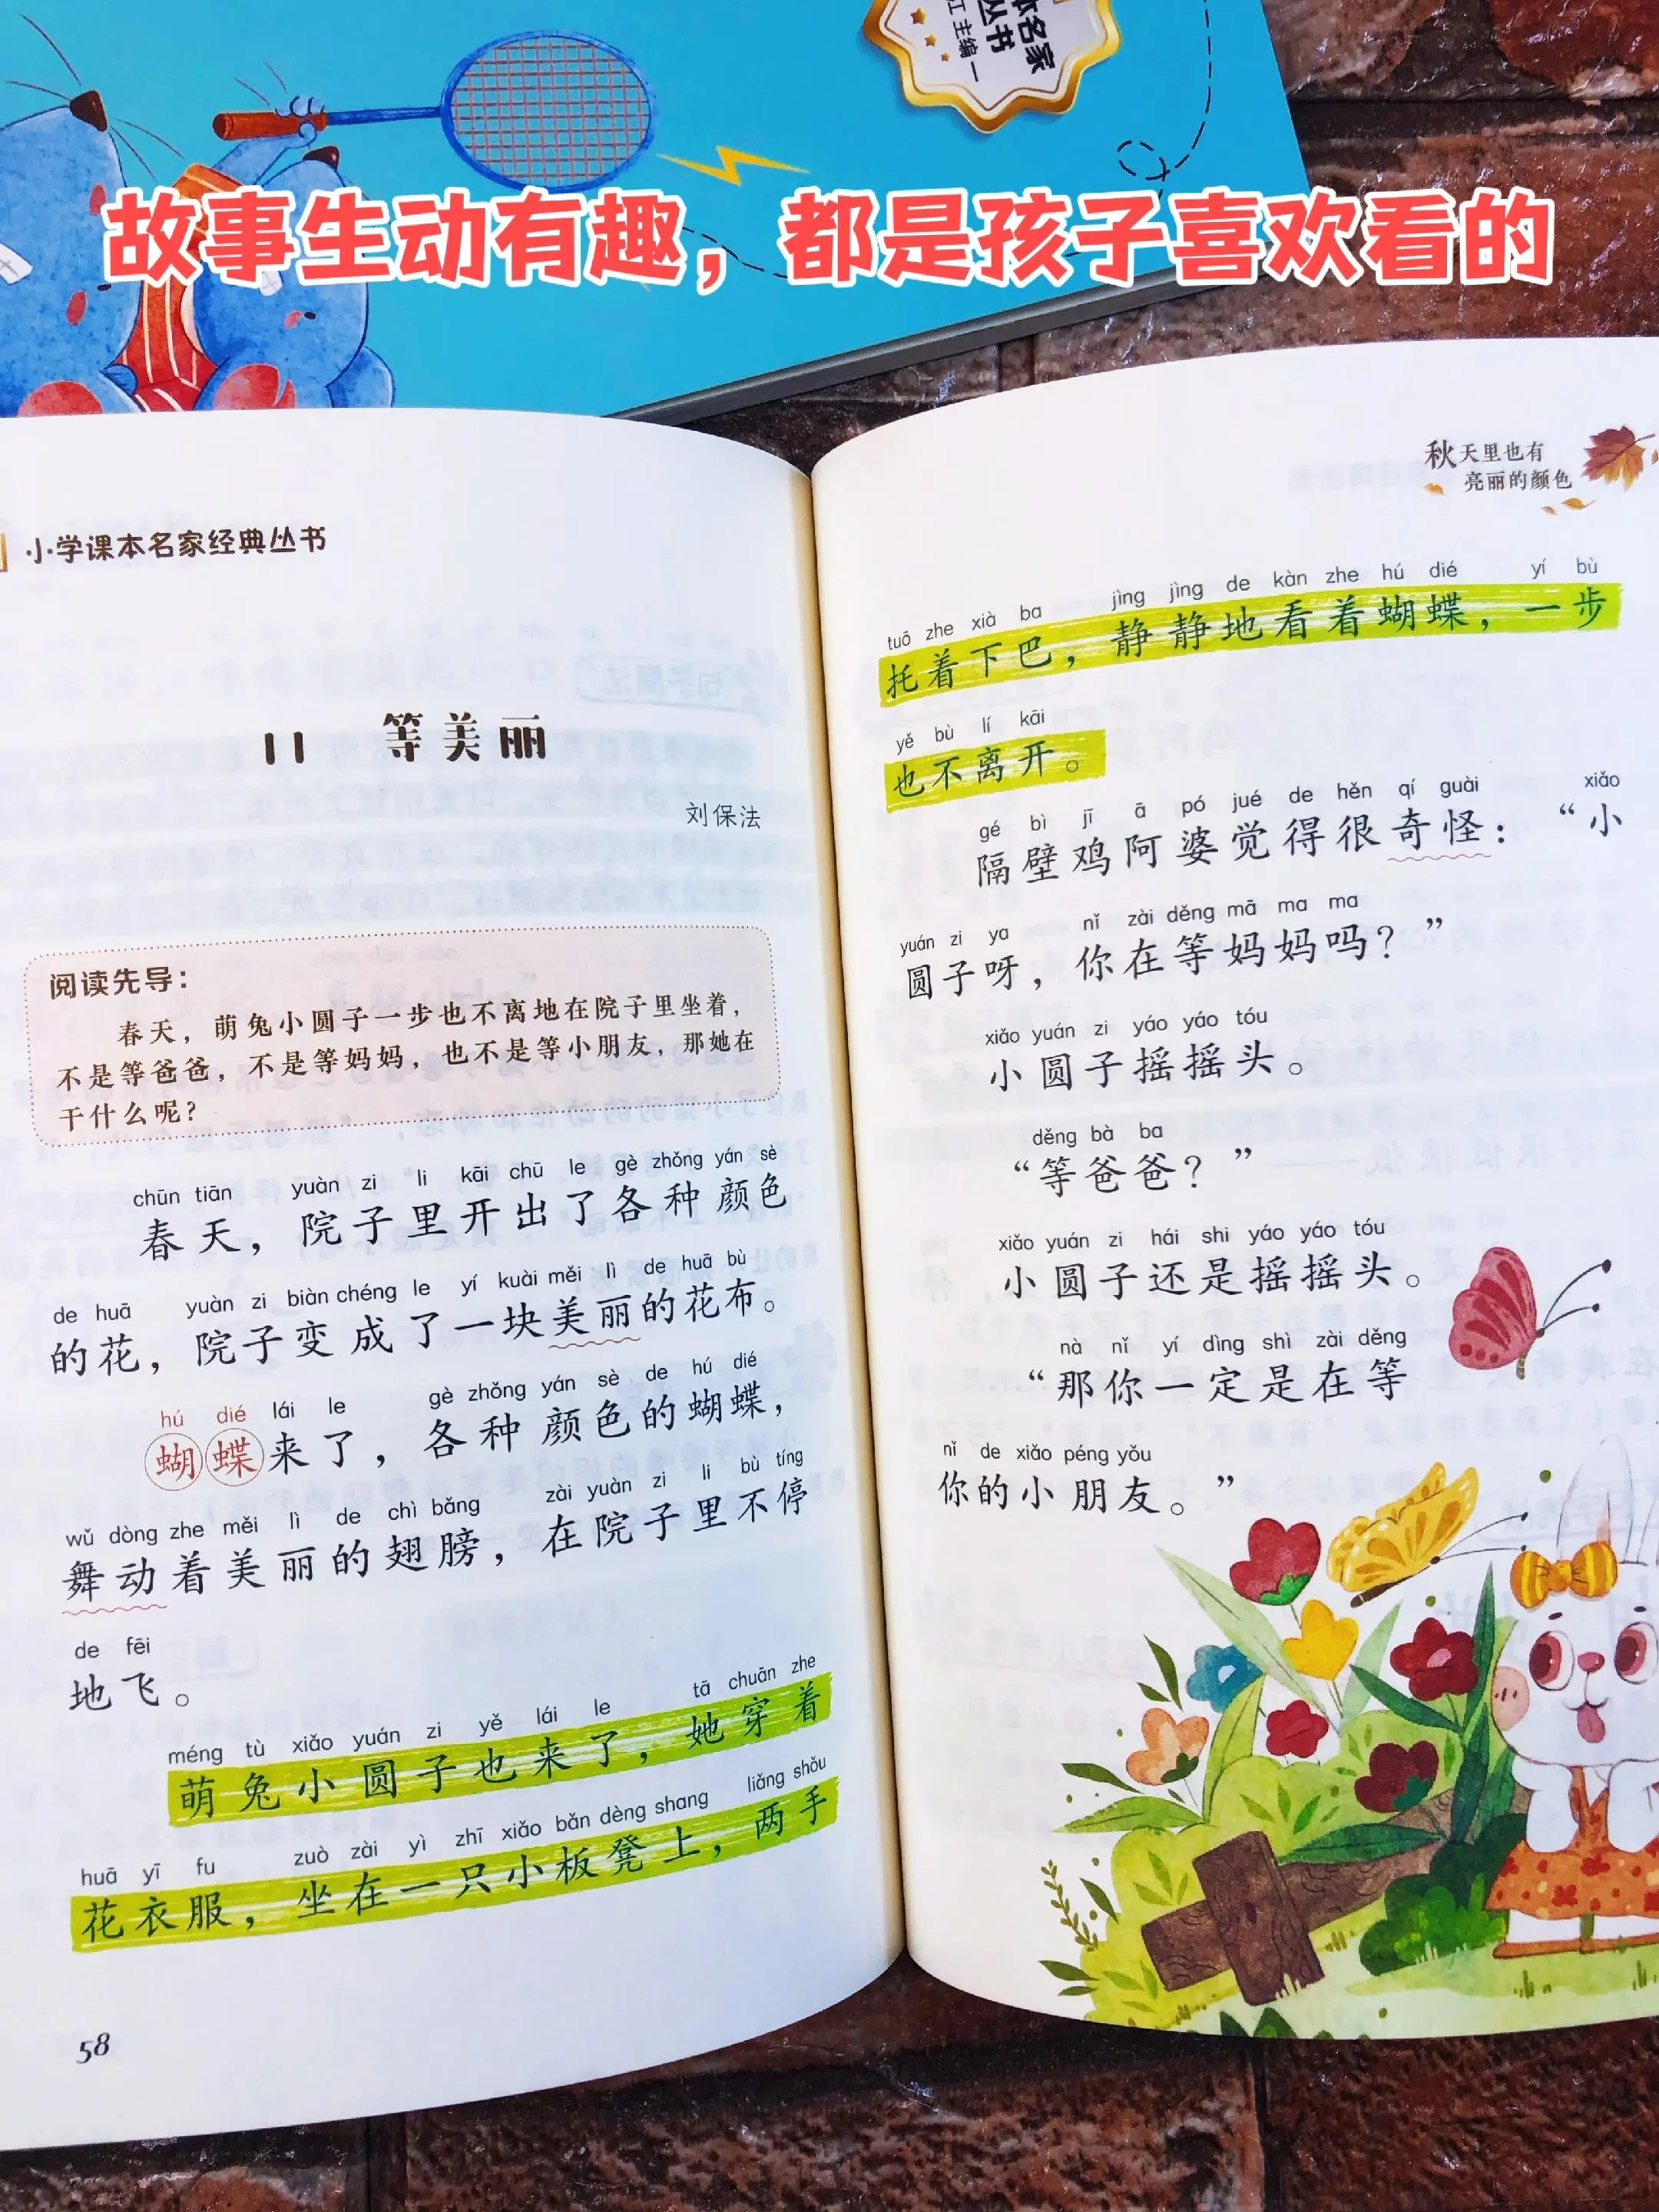 本名家
丛书
江 主编
故事生动有趣，都是孩子喜欢看的
小学课本名家经典丛书
11 等美丽
刘保法
阅读先导：
春天，萌兔小圆子一步也不离地在院子里坐着，
不是等爸爸，不是等妈妈，也不是等小朋友，那她在
干什么呢？
chūn tiān yuàn zi li kāi chū le gè zhǒng yán sè
春天，院子里开出了各种颜色
de huā yuàn zi biàn chéng le yí kuài měi lì de huā bù
的花，院子变成了一块美丽的花布。
hú dié lái le gè zhǒng yán sè de hú dié
蝴蝶来了，各种颜色的蝴蝶，
wǔ dòng zhe měi lì de chì bǎng zài yuàn zi li bù tíng
舞动着美丽的翅膀，在院子里不停
de fēi
地飞。
méng tù xiǎo yuán zi yě lái le tā chuān zhe
萌兔小圆子也来了，她穿着
huā yī fu zuò zài yì zhī xiǎo bǎn dèng shang liǎng shǒu
花衣服，坐在一只小板凳上，两手
58
秋天里也有
亮丽的颜色
tuō zhe xià ba jìng jìng de kàn zhe hú dié yí bù
托着下巴，静静地看着蝴蝶，一步
yě bù lí kāi
也不离开。
gé bì jī ā pó jué de hěn qí guài xiǎo
隔壁鸡阿婆觉得很奇怪：“小
yuán zi ya nǐ zài děng mā ma ma
圆子呀，你在等妈妈吗？”
xiǎo yuán zi yáo yáo tóu
小圆子摇摇头。
děng bà ba
“等爸爸？”
xiǎo yuán zi hái shi yáo yáo tóu
小圆子还是摇摇头。
nà nǐ yí dìng shì zài děng
“那你一定是在等
nǐ de xiǎo péng yǒu
你的小朋友。”